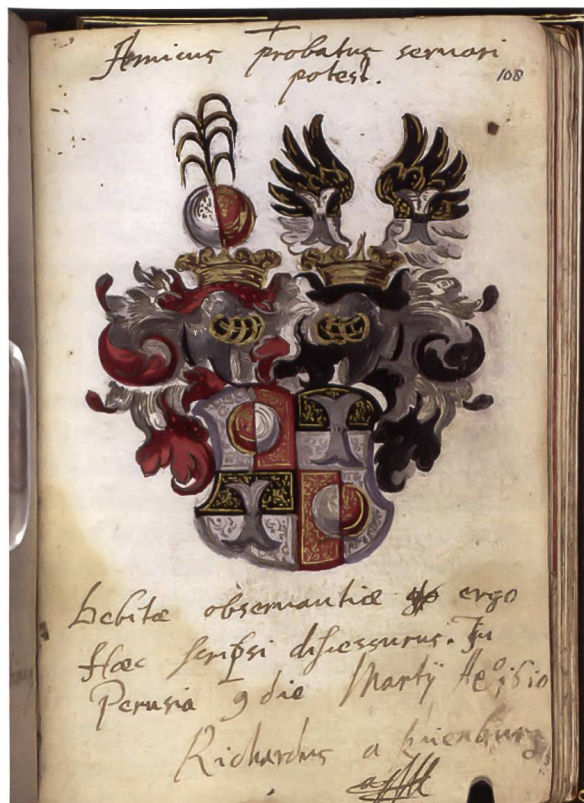 Amicus probatus seruari
potest.
108
Debitæ obseruantiæ ergo
Hæc scripsi discessurus. In
Perusia 9 die Martÿ Aº 1610
Richardus a Kuenburg